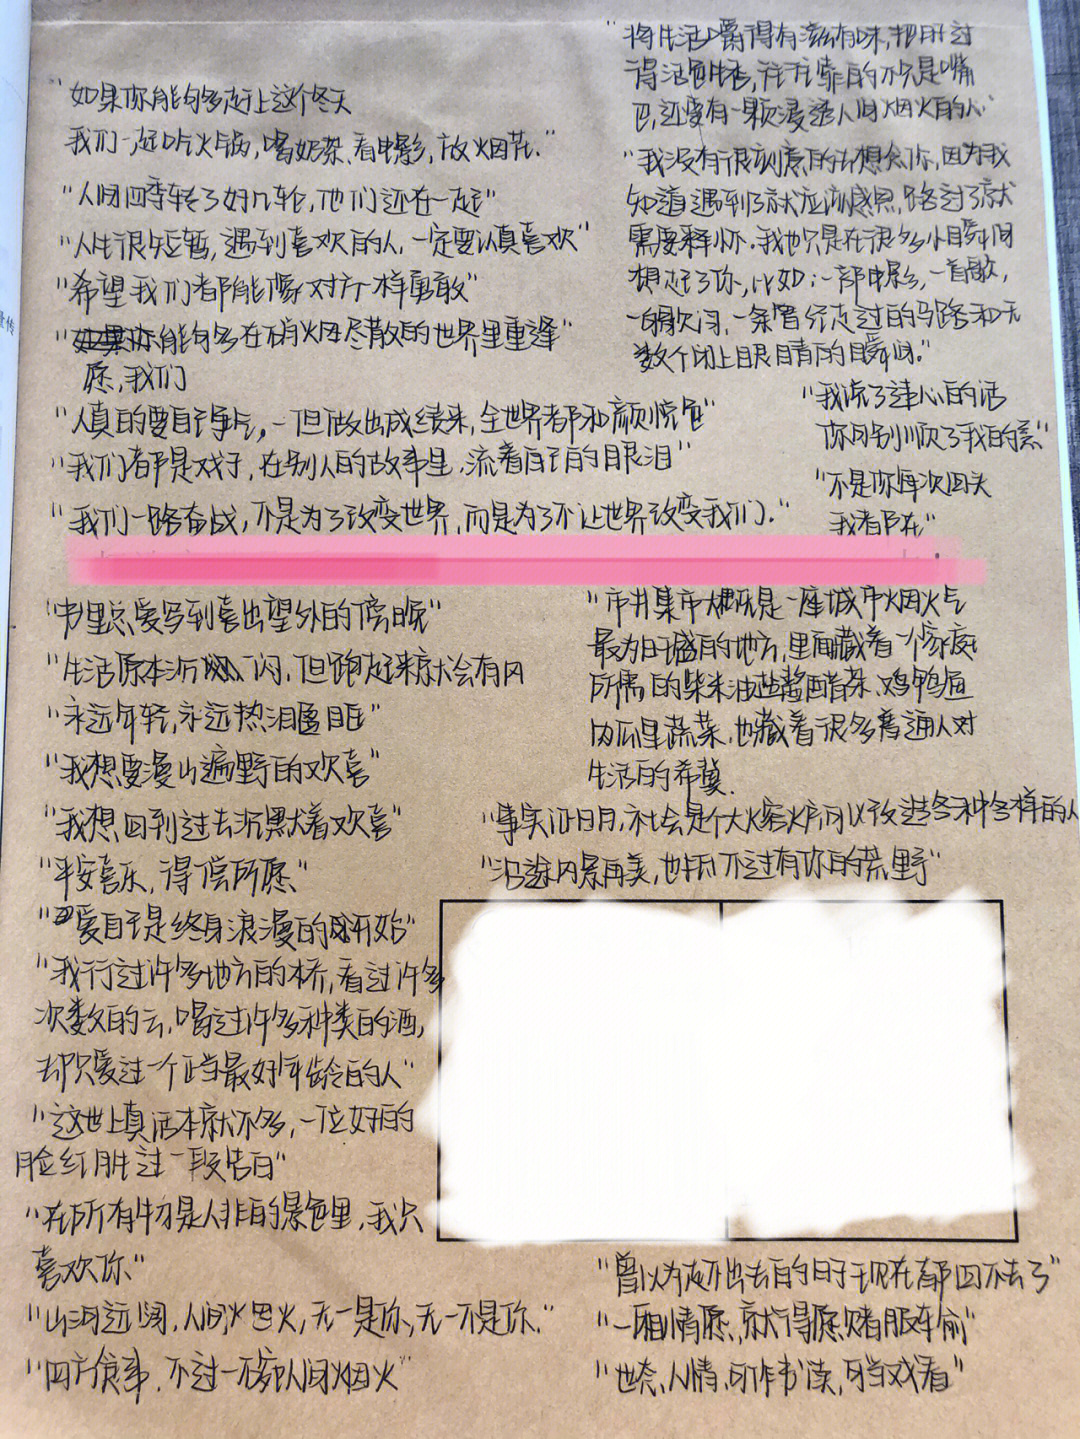 "如果你能够多赶上这个冬天
我们一起吃火锅,喝奶茶、看电影,放烟花."
"人间四季转了好几轮,他们还在一起"
"人生很短暂,遇到喜欢的人,一定要认真喜欢"
"希望我们都能像对方一样勇敢"
能够多在硝烟尽散的世界里重逢"
愿,我们
"人真的要自己争气,一但做出成绩来,全世界都和颜悦色"
"我们都是戏子,在别人的故事里,流着自己的眼泪"
"我们一路奋战,不是为了改变世界,而是为了不让世界改变我们."
"将生活嚼得有滋有味,把日子过
得活色生香,往往靠的不只是嘴
巴,还要有一颗浸透人间烟火的心"
"我没有很刻意的去想念你,因为我
知道遇到了就应该感恩,路过了就
需要释怀.我也只是在很多小瞬间
想起了你,比如:一部电影,一首歌,
一句歌词,一条曾经走过的马路和无
数个闭上眼睛的瞬间."
"我说了违心的话
你别顺了我的意"
"不是你每次回头
我都在"
"书里总爱写到喜出望外的傍晚"
"生活原本沉闷,但跑起来就会有风
"永远年轻,永远热泪盈眶"
"我想要漫山遍野的欢喜"
"我想回到过去沉默着欢喜"
"平安喜乐,得偿所愿."
"爱自己是终身浪漫的开始"
"我行过许多地方的桥,看过许多
次数的云,喝过许多种类的酒,
却只爱过一个正当最好年龄的人"
"这世上真话本就不多,一位好的
脸红胜过一段告白"
"在所有物是人非的景色里,我只
喜欢你"
"山河远阔,人间烟火,无一是你,无一不是你."
"四方食事,不过一碗人间烟火"
"市井集市大概是一座城市烟火气
最为旺盛的地方,里面藏着一个家庭
所需的柴米油盐酱醋茶、鸡鸭鱼
肉瓜果蔬菜,也藏着很多普通人对
生活的希冀.
"事实证明,社会是个大火熔炉,可以改造各种各样的人
"沿途风景再美,也抵不过有你的荒野"
"曾以为走不出去的日子现在都回不去了"
"一厢情愿,就得愿赌服输"
"世态,人情,可作书读,可当戏看"